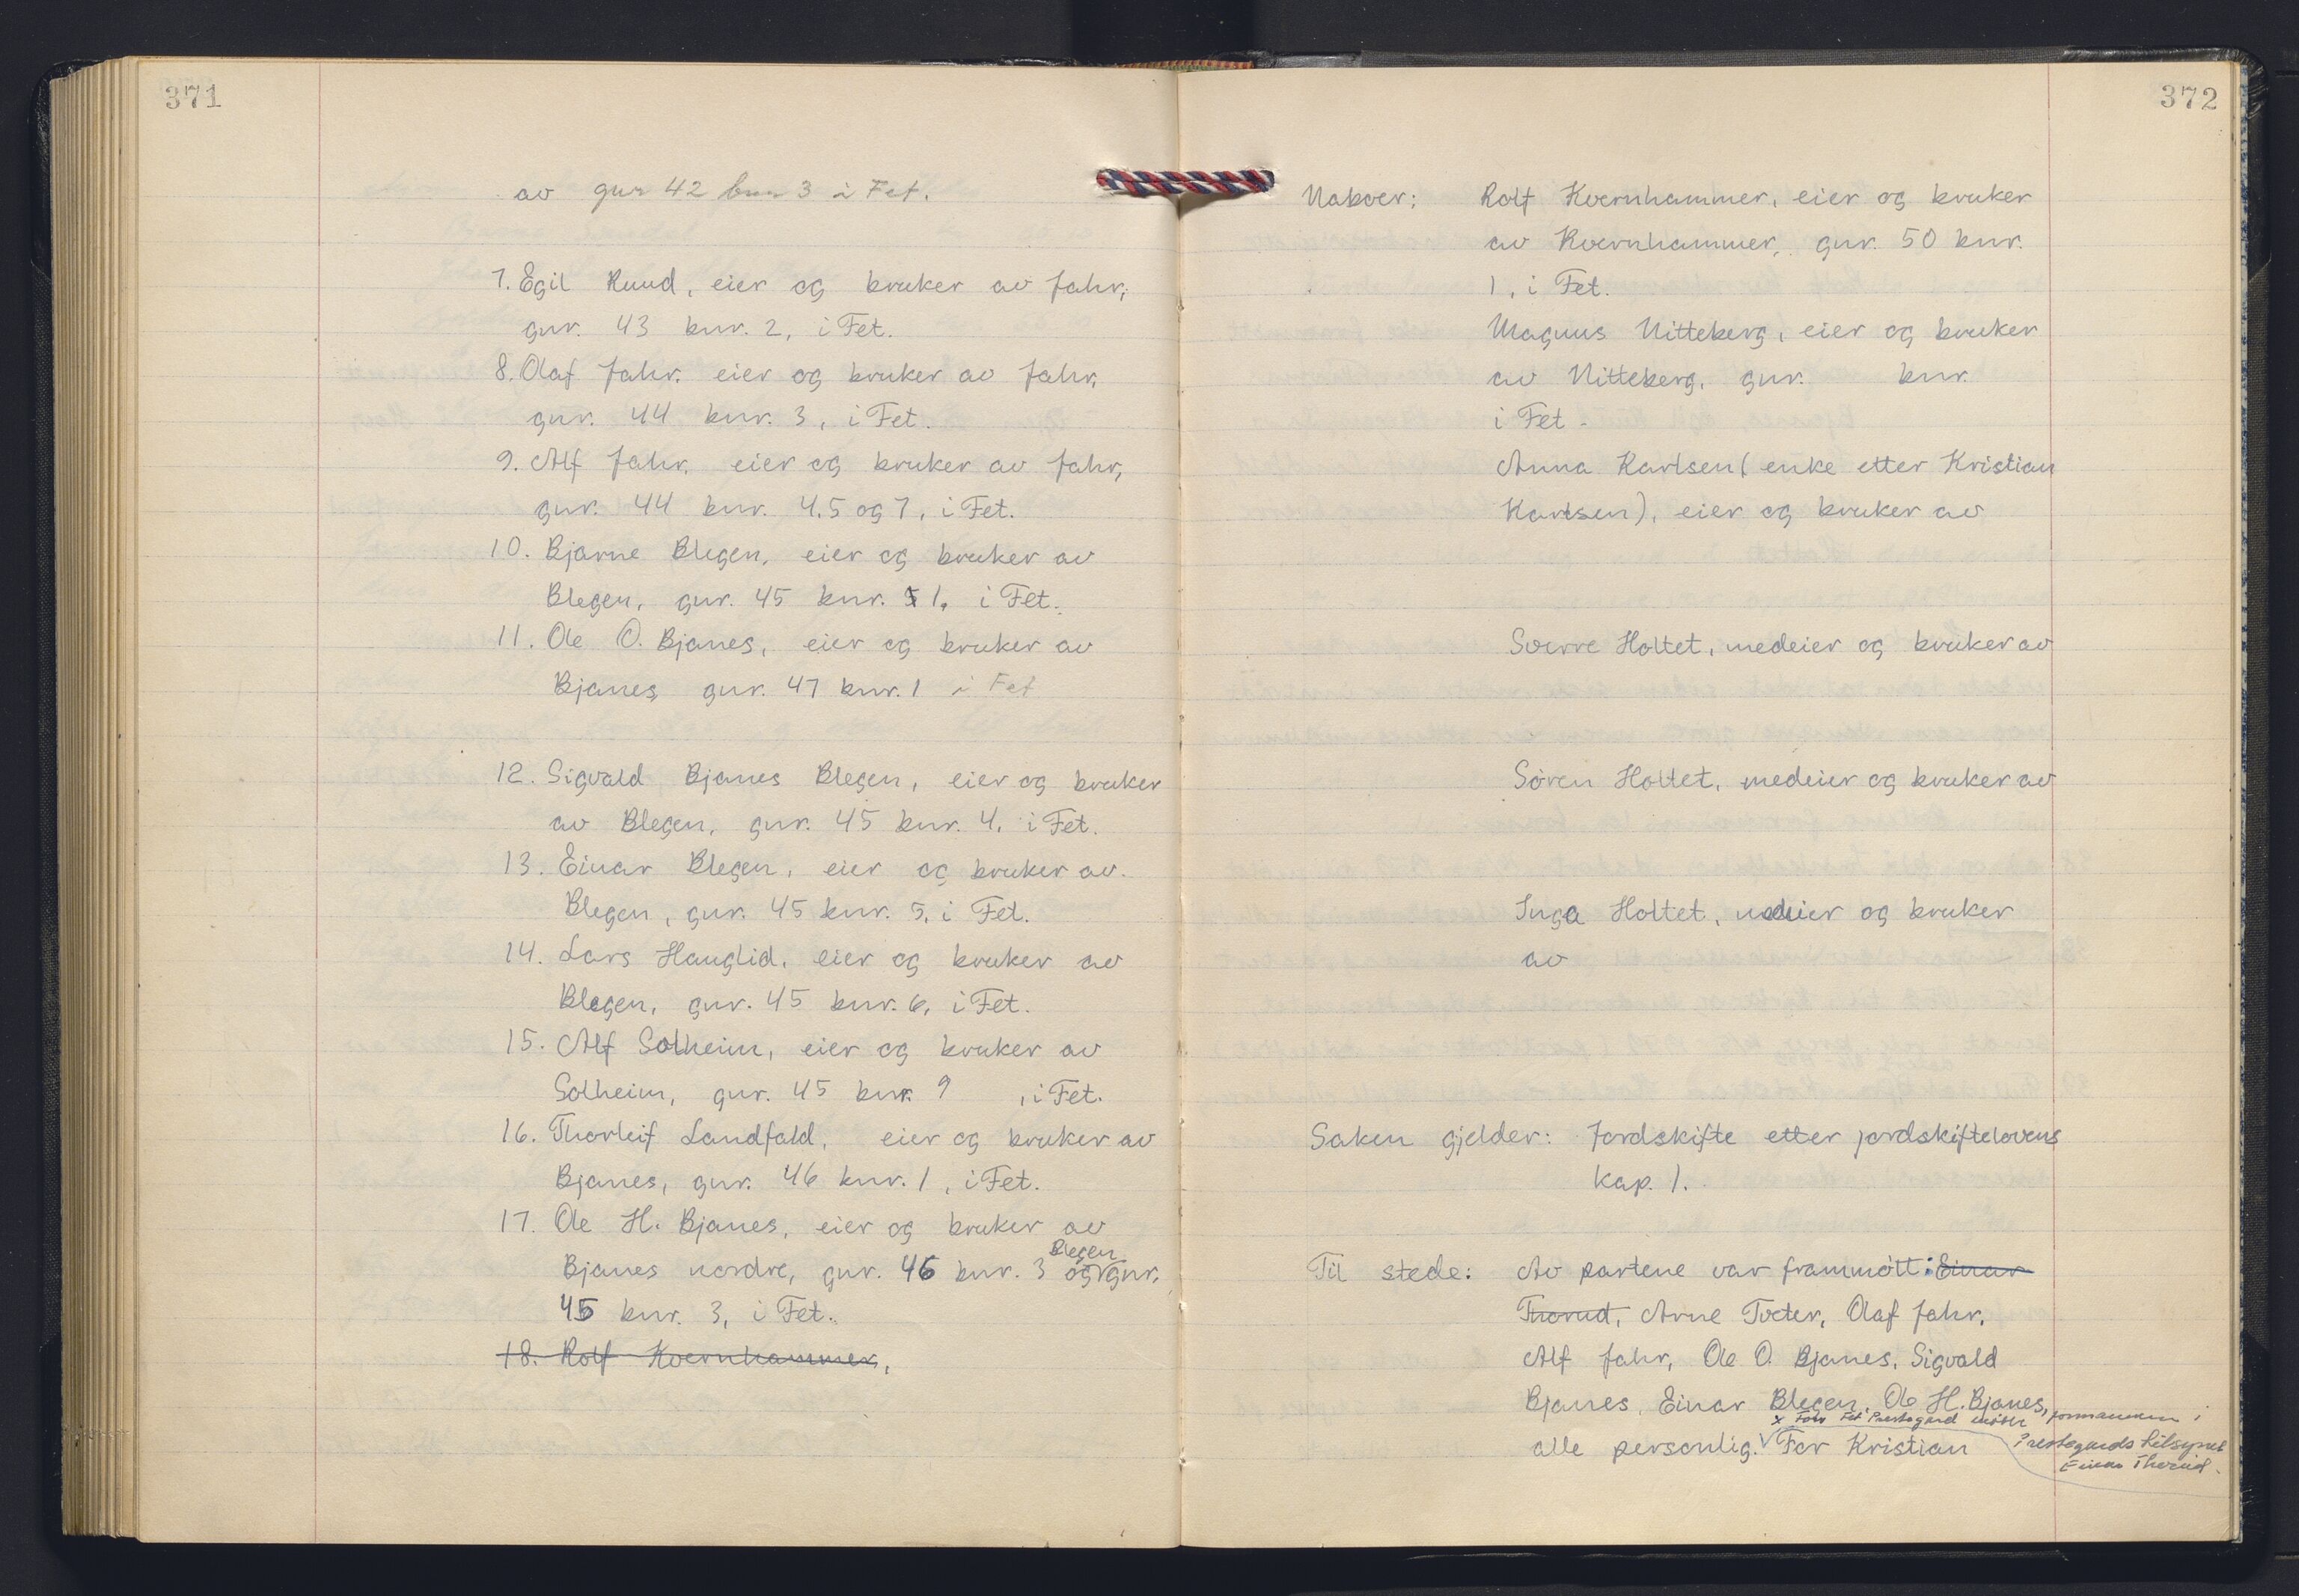 371
av gnr 42 bnr 3 i Fet.
7. Egil Ruud, eier og bruker av Jahr,
gnr. 43 bnr. 2, i Fet.
8. Olaf Jahr, eier og bruker av Jahr,
gnr. 44 bnr. 3, i Fet.
9. Alf Jahr, eier og bruker av Jahr,
gnr. 44 bnr. 4.5 og 7, i Fet.
10. Bjarne Blegen, eier og bruker av
Blegen, gnr. 45 bnr. 1, i Fet.
11. Ole O. Bjanes, eier og bruker av
Bjanes gnr. 47 bnr. 1 i Fet
12. Sigvald Bjanes Blegen, eier og bruker
av Blegen, gnr. 45 bnr. 4, i Fet.
13. Einar Blegen, eier og bruker av
Blegen, gnr. 45 bnr. 5, i Fet.
14. Lars Hauglid, eier og bruker av
Blegen, gnr. 45 bnr. 6, i Fet.
15. Alf Solheim, eier og bruker av
Solheim, gnr. 45 bnr. 9 , i Fet.
16. Thorleif Landfald, eier og bruker av
Bjanes, gnr. 46 bnr. 1, i Fet.
17. Ole H. Bjanes, eier og bruker av
Blegen
Bjanes nordre, gnr. 46 bnr. 3 og gnr.
45 bnr. 3, i Fet.
18. Rolf Kvernhammer,
372
Naboer: Rolf Kvernhammer, eier og bruker
av Kvernhammer, gnr. 50 bnr.
1, i Fet.
Magnus Nitteberg, eier og bruker
av Nitteberg, gnr. bnr.
i Fet.
Anna Karlsen (enke etter Kristian
Karlsen), eier og bruker av
Sverre Holtet, medeier og bruker av
Sören Holtet, medeier og bruker av
Inga Holtet, medeier og bruker
av
Saken gjelder: Jordskifte etter jordskiftelovens
kap. 1.
Til stede: Av partene var frammött: Einar
Thorud, Arne Tveter, Olaf Jahr,
Alf Jahr, Ole O. Bjanes, Sigvald
Bjanes, Einar Blegen, Ole H. Bjanes,
x For Fet Prestegard möter formannen i
alle personlig. For Kristian
Prestegards tilsynet
Einar Thorud.